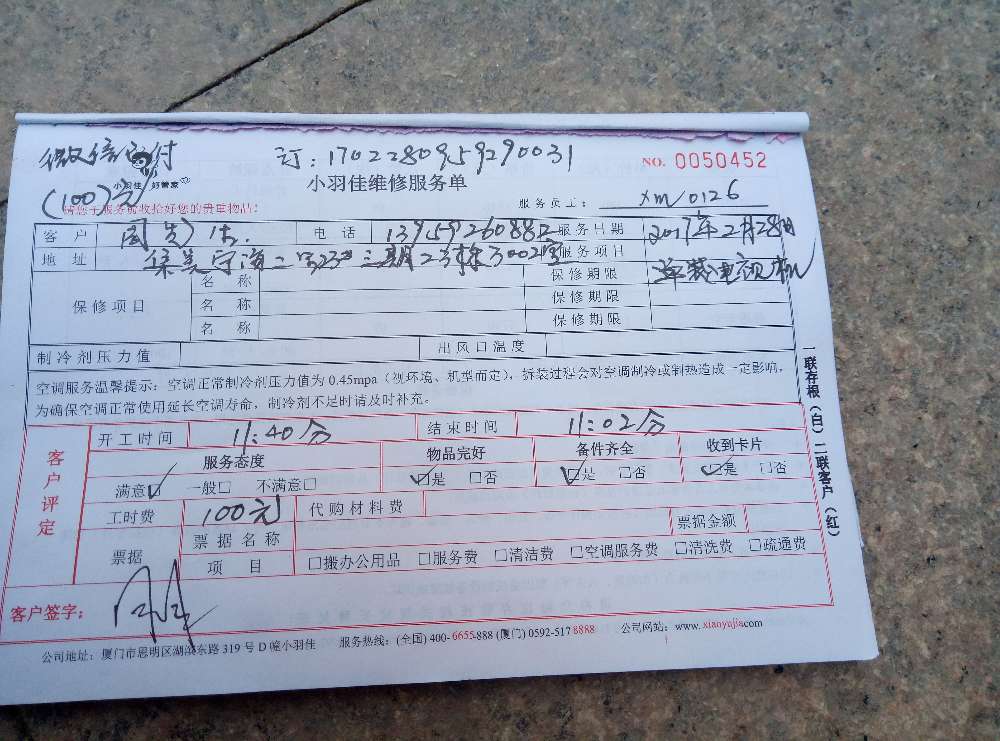 微信已付 订:1702280959290031 NO. 0050452
(100)元 小羽佳 好管家 小羽佳维修服务单
请您于服务前收拾好您的贵重物品! 服务员工: xm0126
客户 周先生. 电话 13959260882 服务日期 2017年2月28日
地址 二期2号楼3002室 服务项目
保修项目 名称 保修期限 拆装电视机
名称 保修期限
名称 保修期限
制冷剂压力值 出风口温度
空调服务温馨提示:空调正常制冷剂压力值为 0.45mpa(视环境、机型而定),拆装过程会对空调制冷或制热造成一定影响,
为确保空调正常使用延长空调寿命,制冷剂不足时请及时补充。
客户评定 开工时间 11:40分 结束时间 11:02分
服务态度 物品完好 备件齐全 收到卡片
满意☑ 一般□ 不满意□ ☑是 □否 ☑是 □否 ☑是 □否
工时费 100元 代购材料费
票据 票据名称 票据金额
项目 □搬办公用品 □服务费 □清洁费 □空调服务费 □清洗费 □疏通费
客户签字:
公司地址:厦门市思明区湖滨东路 319 号 D 幢小羽佳 服务热线:(全国) 400-6655-888 (厦门) 0592-517 8888 公司网站:www.xianyujia.com
一联存根(白)二联客户(红)